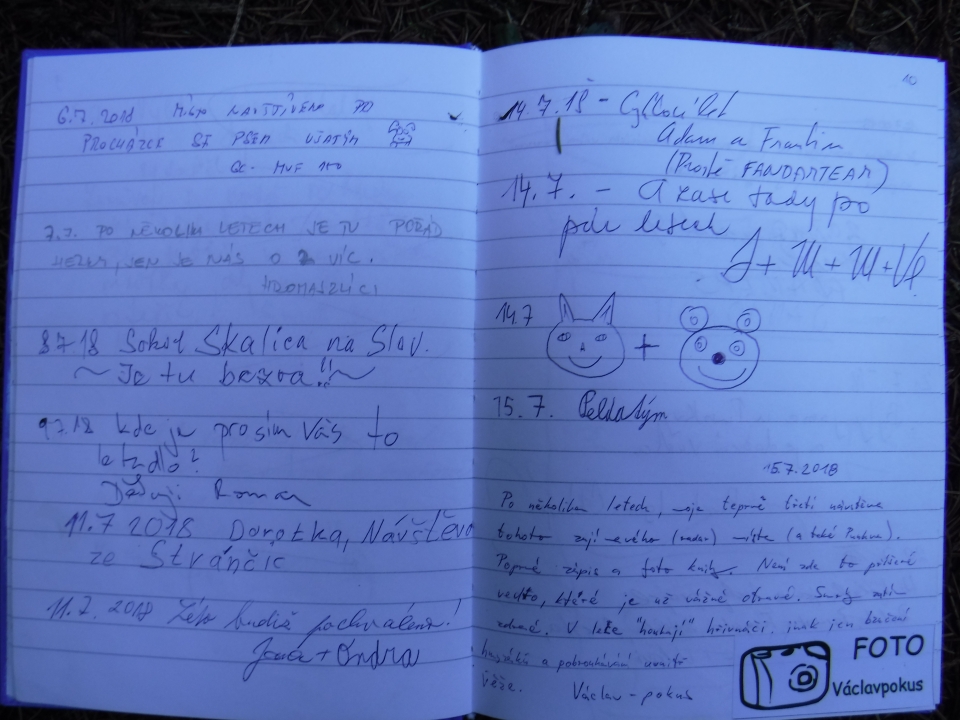 6.7.2018 MÍSTO NAVŠTÍVENO PO
PROCHÁZCE SE PSEM UŠATÝM
7.7. PO NĚKOLIKA LETECH JE TU POŘÁD
HEZKY, JEN JE NÁS O 2 VÍC.
8 7 18 Sokol Skalica na Slov.
~ Je tu bezva!! ~
9 7.18 kde je prosím Vás to
letadlo?
Děkuji Roman
11.7 2018 Dorotka, Návštěva
ze Stránčic
11.7. 2018 Léto budiž pochváleno!
Jana + Ondra
10
14.7.18 -
Adam a Frantin
(Prostě FANDATEAM)
14.7. - A zase tady po
pár letech
J + M + M + V
14.7
+
15.7. Peldatým
15.7.2018
Po několika letech, moje teprve třetí návštěva
tohoto zajímavého (radar) místa (a také Parkura).
Poprvé zápis a foto knihy. Není zde to příšerné
vedro, které je už vážně otravné.
V lese "houkají" hřivnáči, jinak jen bzučení
a uvnitř
věže. Václav - pokus
FOTO
Václavpokus